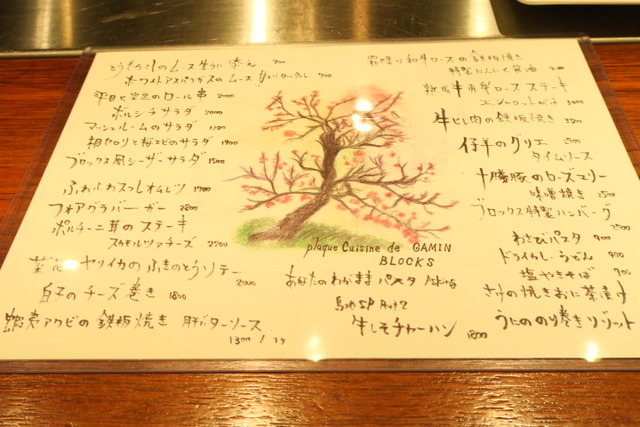 とうもろこしのムース生うに添え 700
ホワイトアスパラガスのムース 700
平目と空豆のロール串 2000
ポルシチサラダ 2000
マッシュルームのサラダ 1500
根セロリと桜エビのサラダ
ブロックス風シーザーサラダ 1500
ふわふわスフレオムレツ 1700
フォアグラバーガー 2800
ポルチーニ茸のステーキ
スカモルツァチーズ 2200
菜花とヤリイカのふきのとうソテー 2000
白子のチーズ巻き 1800
蝦夷アワビの鉄板焼き 肝バターソース
霜降り和牛ロースの鉄板焼き
特製にんにく醤油
牛ヒレ肉の鉄板焼き
仔羊のグリエ
タイムソース
十勝豚のロースエリー
味噌焼き 2500
ブロックス特製ハンバーグ 2500
わさびパスタ 900
ドライカレーうどん 900
塩やきそば 900
さけの焼きおに茶漬け
うにののり巻きリゾット
plaque Cuisine de GAMIN
BLOCKS
あなたのわがままパスタ Asking
生しそチャーハン 1800